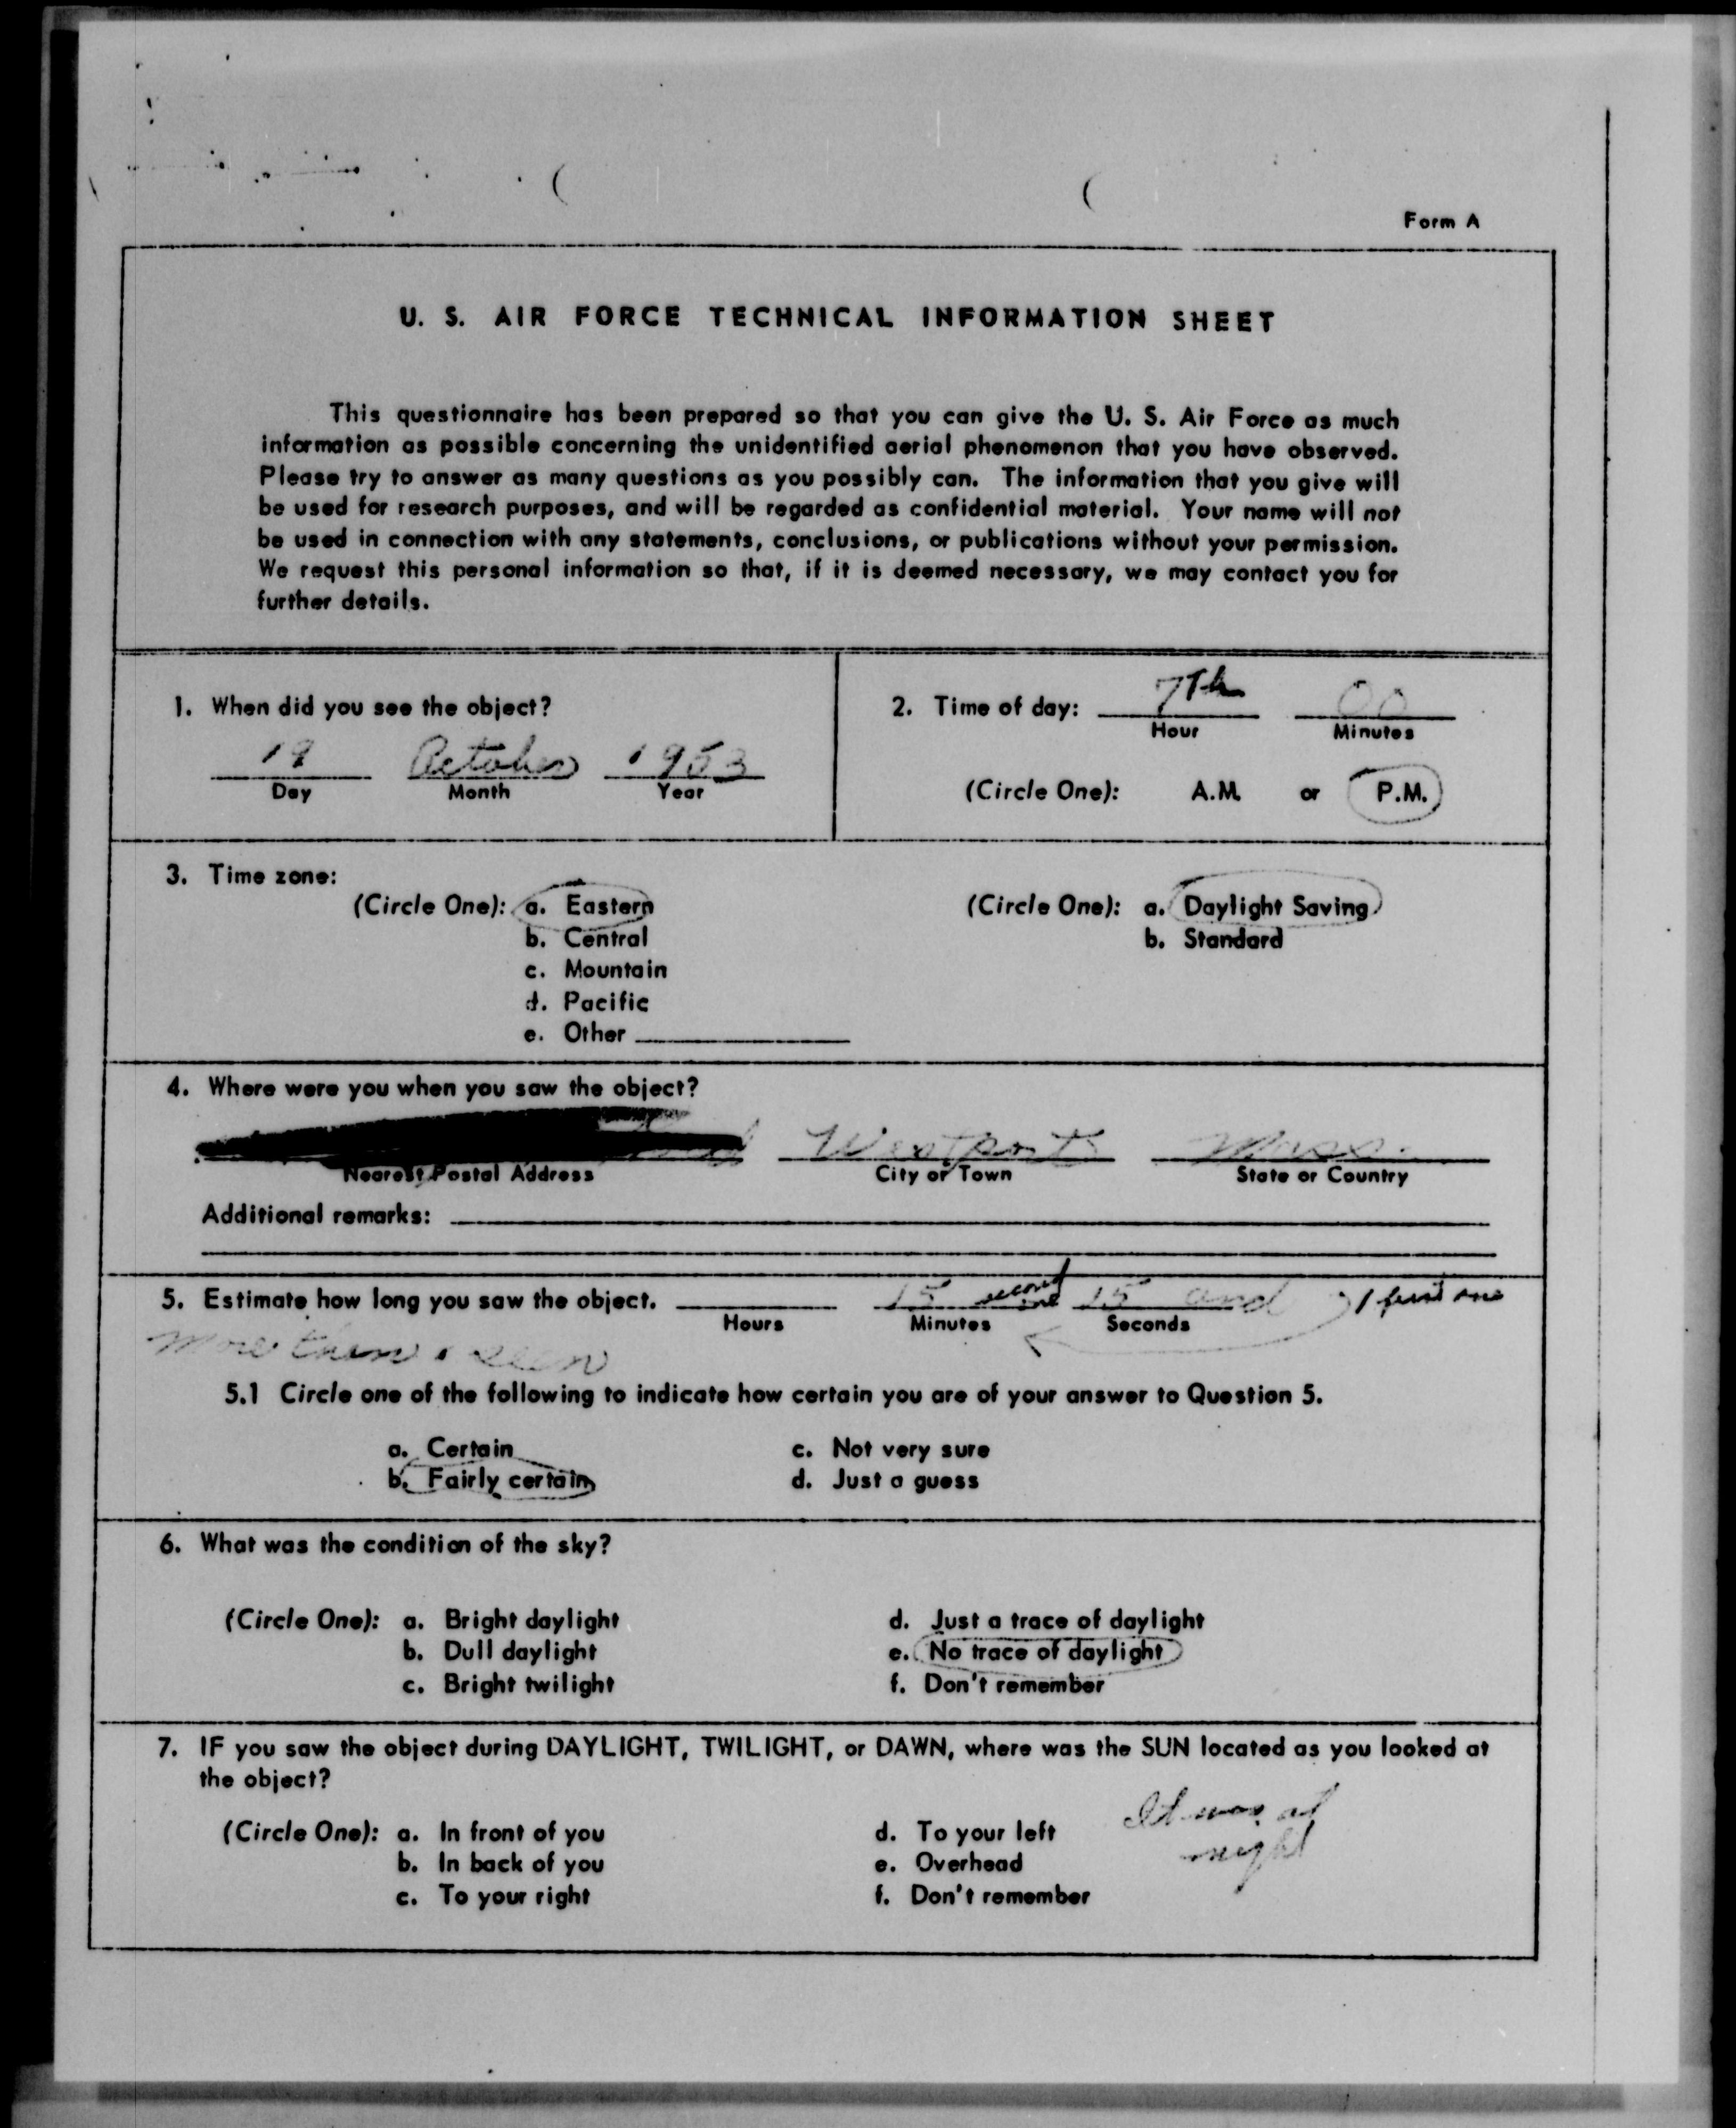 Form A
U. S. AIR FORCE TECHNICAL INFORMATION SHEET
This questionnaire has been prepared so that you can give the U. S. Air Force as much
information as possible concerning the unidentified aerial phenomenon that you have observed.
Please try to answer as many questions as you possibly can. The information that you give will
be used for research purposes, and will be regarded as confidential material. Your name will not
be used in connection with any statements, conclusions, or publications without your permission.
We request this personal information so that, if it is deemed necessary, we may contact you for
further details.
1. When did you see the object?
October 1953
Day Month Year
2. Time of day: 7Th 00
Hour Minutes
(Circle One): A.M. or P.M.
3. Time zone:
(Circle One): a. Eastern
b. Central
c. Mountain
d. Pacific
e. Other
(Circle One): a. Daylight Saving
b. Standard
4. Where were you when you saw the object?
Westport Mass.
Nearest Postal Address City or Town State or Country
Additional remarks:
5. Estimate how long you saw the object. 15 second one 15 and 1 first one
Hours Minutes Seconds
more then seen
5.1 Circle one of the following to indicate how certain you are of your answer to Question 5.
a. Certain c. Not very sure
b. Fairly certain d. Just a guess
6. What was the condition of the sky?
(Circle One): a. Bright daylight d. Just a trace of daylight
b. Dull daylight e. No trace of daylight
c. Bright twilight f. Don't remember
7. IF you saw the object during DAYLIGHT, TWILIGHT, or DAWN, where was the SUN located as you looked at
the object?
It was at
night
(Circle One): a. In front of you d. To your left
b. In back of you e. Overhead
c. To your right f. Don't remember